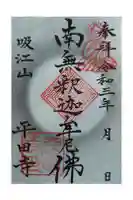 奉拝
令和三年 月 日
南無釈迦牟尼佛
吸江山
平田寺